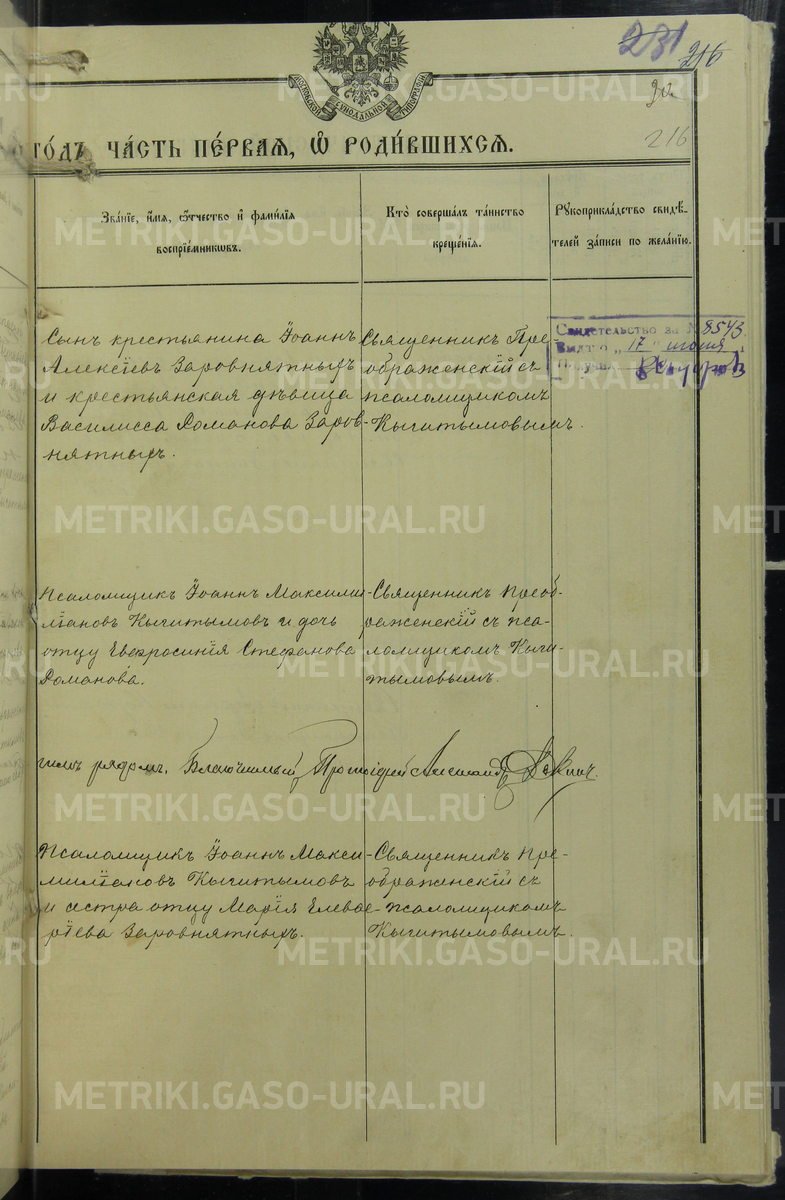 231 216
МОСКОВСКОЙ СѴНОДАЛЬНОЙ ТИПОГРАФІИ
216
го́дъ ча́сть пе́рваѧ, ѡ роди́вшихсѧ.
Зва́нїе, и́мѧ, о́тчество и҆ фами́лїѧ
воспрїе́мникѡвъ.
Кто̀ соверша́лъ та́инство
креще́нїѧ.
Рꙋкоприкла́дство свидѣ́-
телей за́писи по жела́нїю.
Сынъ крестьянина Іоаннъ
Алексіевъ Заровнятныхъ
и крестьянская дѣвица
Василисса Романова Заров-
нятныхъ.
Священникъ Пре-
ображенскій съ
псаломщикомъ
Кыгитымовымъ.
Свидетельство за № 8543
Выдано „17“ июня
Получил
Псаломщикъ Іоаннъ Максими-
ліановъ Кыгитымовъ и дочь
отцу Евфросинія Стефанова
Романова.
Священникъ Преоб-
раженскій съ пса-
ломщикомъ Кыги-
тымовымъ.
рядомъ. Благочинный, Протоіерей
Псаломщикъ Іоаннъ Макси-
миліановъ Кыгитымовъ
и сестра отцу Марія Елевѳе-
ріева Заровнятныхъ.
Священникъ Пре-
ображенскій съ
псаломщикомъ
Кыгитымовымъ.
METRIKI.GASO-URAL.RU